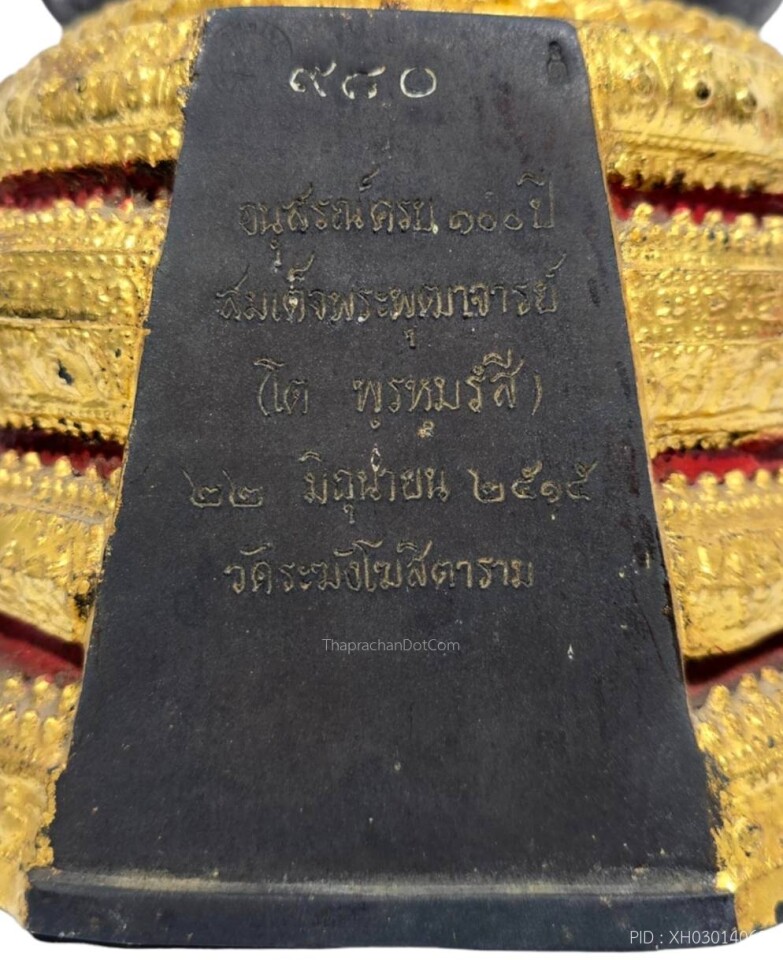 ๙๘๐
อนุสรณ์ครบ ๑๐๐ ปี
สมเด็จพระพุฒาจารย์
(โต พฺรหฺมรํสี)
๒๒ มิถุนายน ๒๕๑๕
วัดระฆังโฆสิตาราม
ThaprachanDotCom
PID :